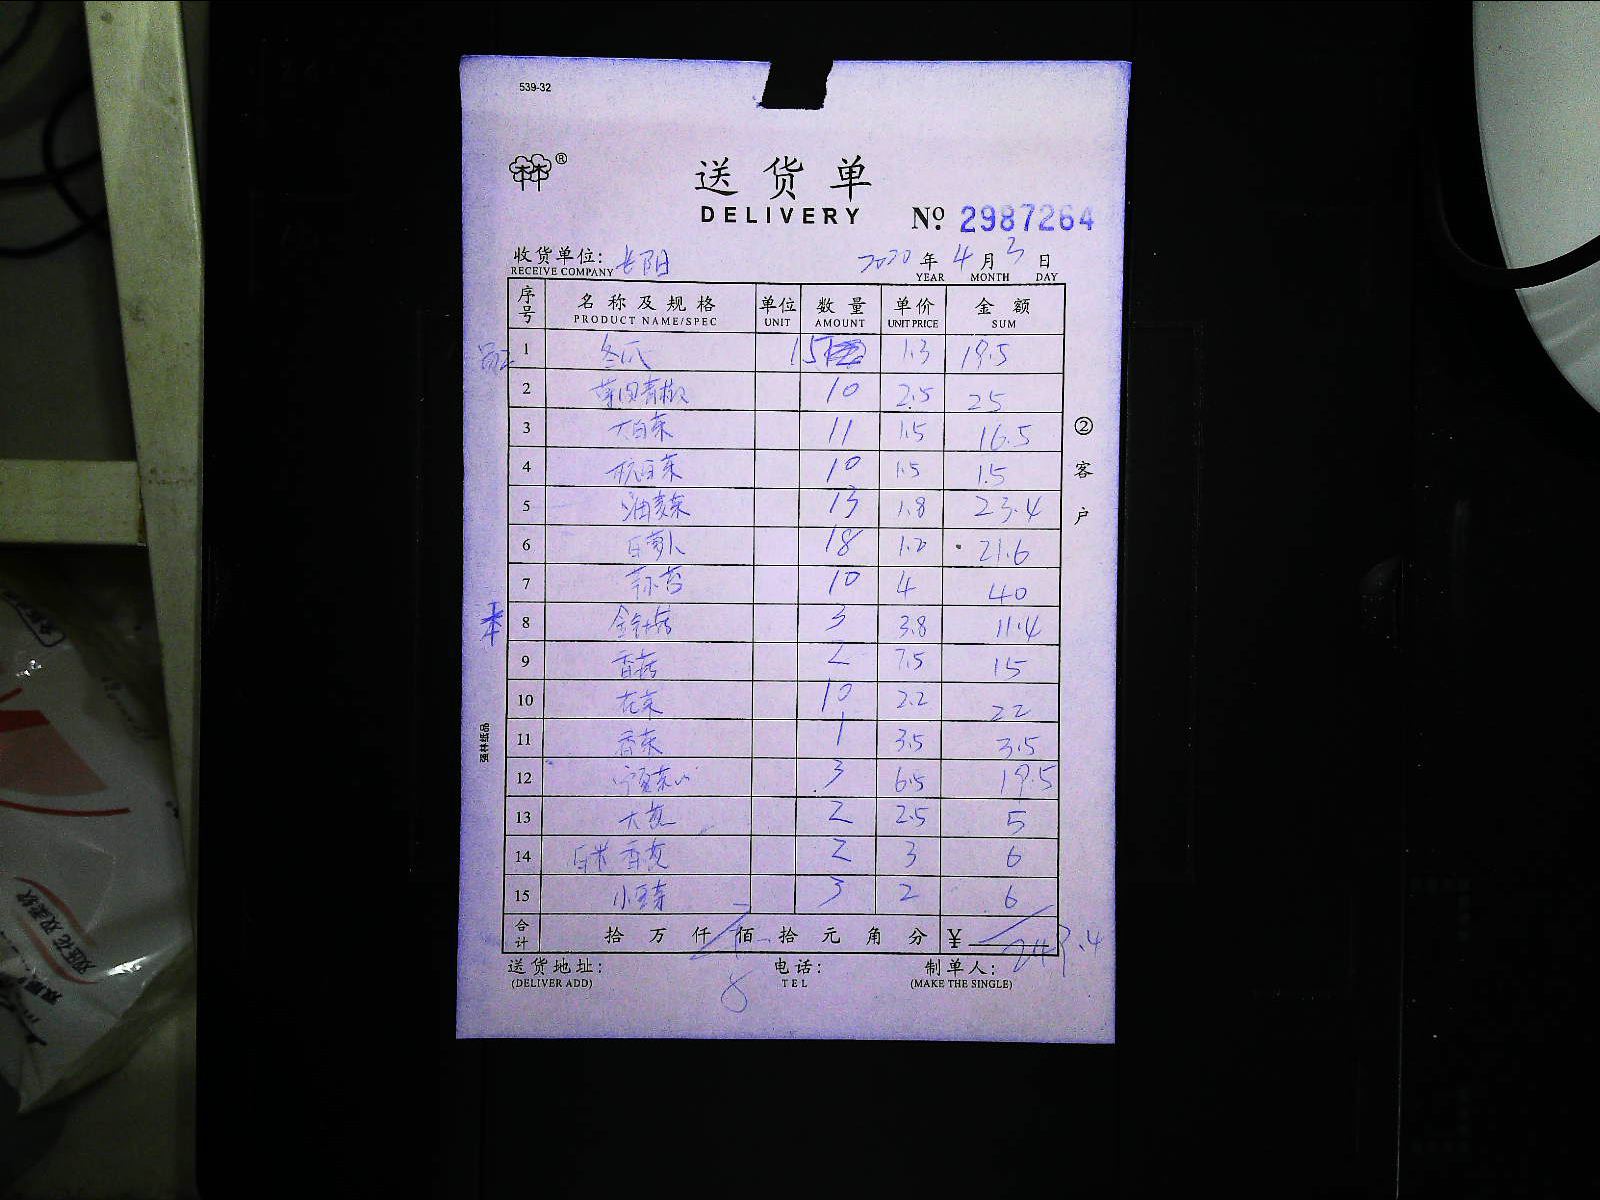 539-32
林林 ®
送货单
DELIVERY № 2987264
收货单位: 长阳 2020 年 4 月 3 日
RECEIVE COMPANY YEAR MONTH DAY
序号 名称及规格 单位 数量 单价 金额
PRODUCT NAME/SPEC UNIT AMOUNT UNIT PRICE SUM
1 冬瓜 15 1.3 19.5
2 青椒 10 2.5 25
3 大白菜 11 1.5 16.5
4 杭白菜 10 1.5 1.5
5 油麦菜 13 1.8 23.4
6 白萝卜 18 1.2 21.6
7 蒜苔 10 4 40
8 金针菇 3 3.8 11.4
9 香菇 2 7.5 15
10 花菜 10 2.2 22
11 香菜 1 3.5 3.5
12 宁夏菜心 3 6.5 19.5
13 大葱 2 2.5 5
14 香葱 2 3 6
15 小豆芽 3 2 6
合计 拾 万 仟 佰 拾 元 角 分 ¥ 249.4
送货地址: 电话: 制单人:
(DELIVER ADD) TEL (MAKE THE SINGLE)
② 客户
强林纸品